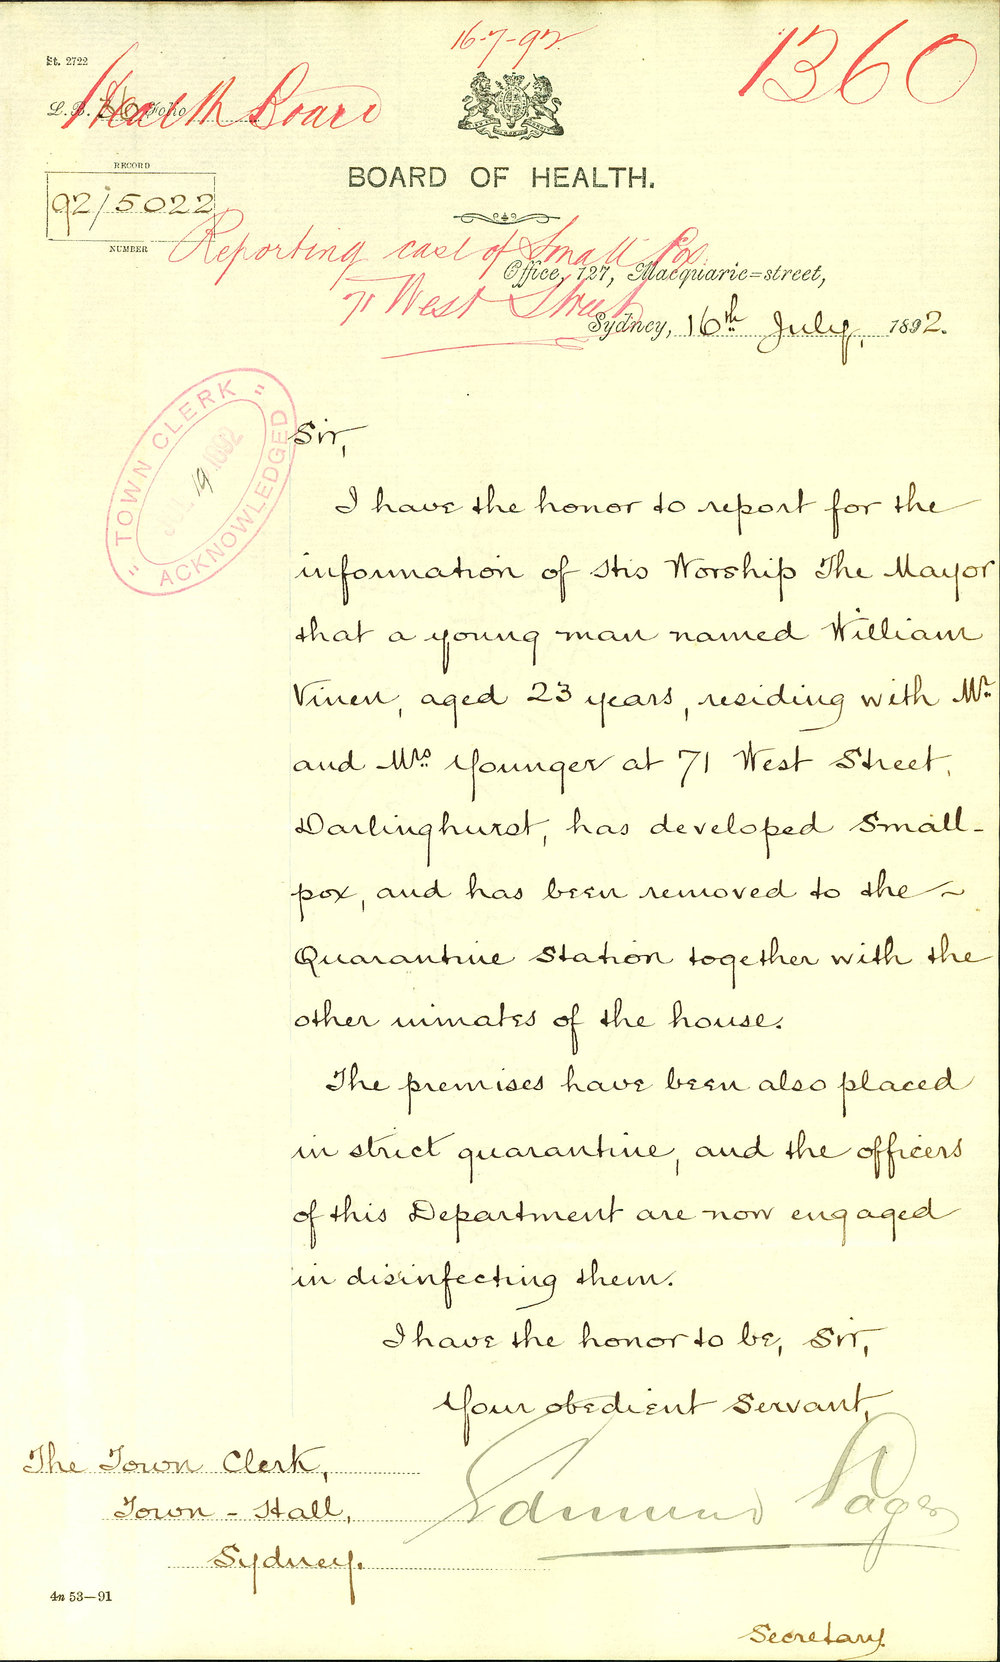 16-7-92
1360
St. 2722
L. B. 20 Folio
Health Board
BOARD OF HEALTH.
RECORD
92/5022
NUMBER
Reporting case of Small Pox
71 West Street
Office, 127, Macquarie=street,
Sydney, 16th July, 1892.
"TOWN CLERK"
19 1892
ACKNOWLEDGED
Sir,
I have the honor to report for the
information of His Worship The Mayor
that a young man named William
Vinen, aged 23 years, residing with Mr.
and Mrs. Younger at 71 West Street,
Darlinghurst, has developed Small-
pox, and has been removed to the
Quarantine Station together with the
other inmates of the house.
The premises have been also placed
in strict quarantine, and the officers
of this Department are now engaged
in disinfecting them.
I have the honor to be, Sir,
Your obedient Servant,
Edmund Sager
Secretary.
The Town Clerk,
Town-Hall,
Sydney.
4n 53—91